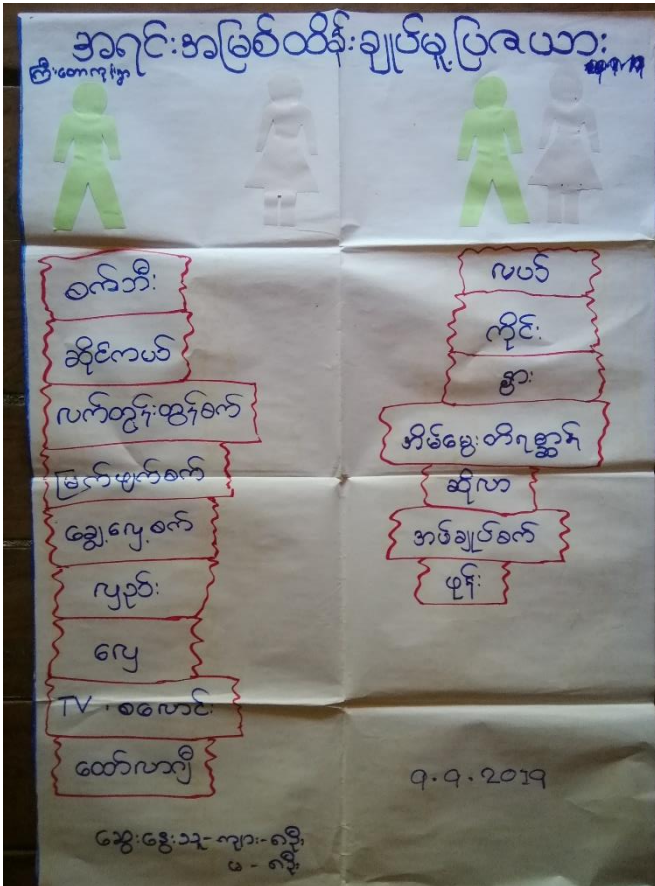 အရင်းအမြစ်ထိန်းချုပ်မှု ပြဇယား
ကြီးတောကုန်းရွာ
စက်ဘီး
ဆိုင်ကယ်
လက်တွန်းထွန်စက်
မြက်ဖျက်စက်
ချွေလှေ့စက်
လှည်း
လှေ
TV . စလောင်း
ထော်လာဂျီ
လယ်
ကိုင်း
နွား
အိမ်မွေးတိရစ္ဆာန်
ဆိုလာ
အပ်ချုပ်စက်
ဖုန်း
9.9.2019
ဆွေးနွေးသူ-ကျား-၈ဦး
မ - ၈ဦး